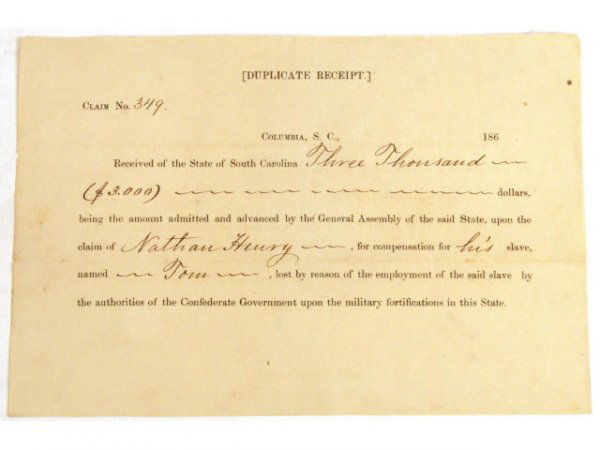 [DUPLICATE RECEIPT.]
CLAIM No. 349.
COLUMBIA, S. C., 186
Received of the State of South Carolina Three Thousand
($3.000) dollars,
being the amount admitted and advanced by the General Assembly of the said State, upon the
claim of Nathan Henry , for compensation for his slave,
named Tom , lost by reason of the employment of the said slave by
the authorities of the Confederate Government upon the military fortifications in this State.